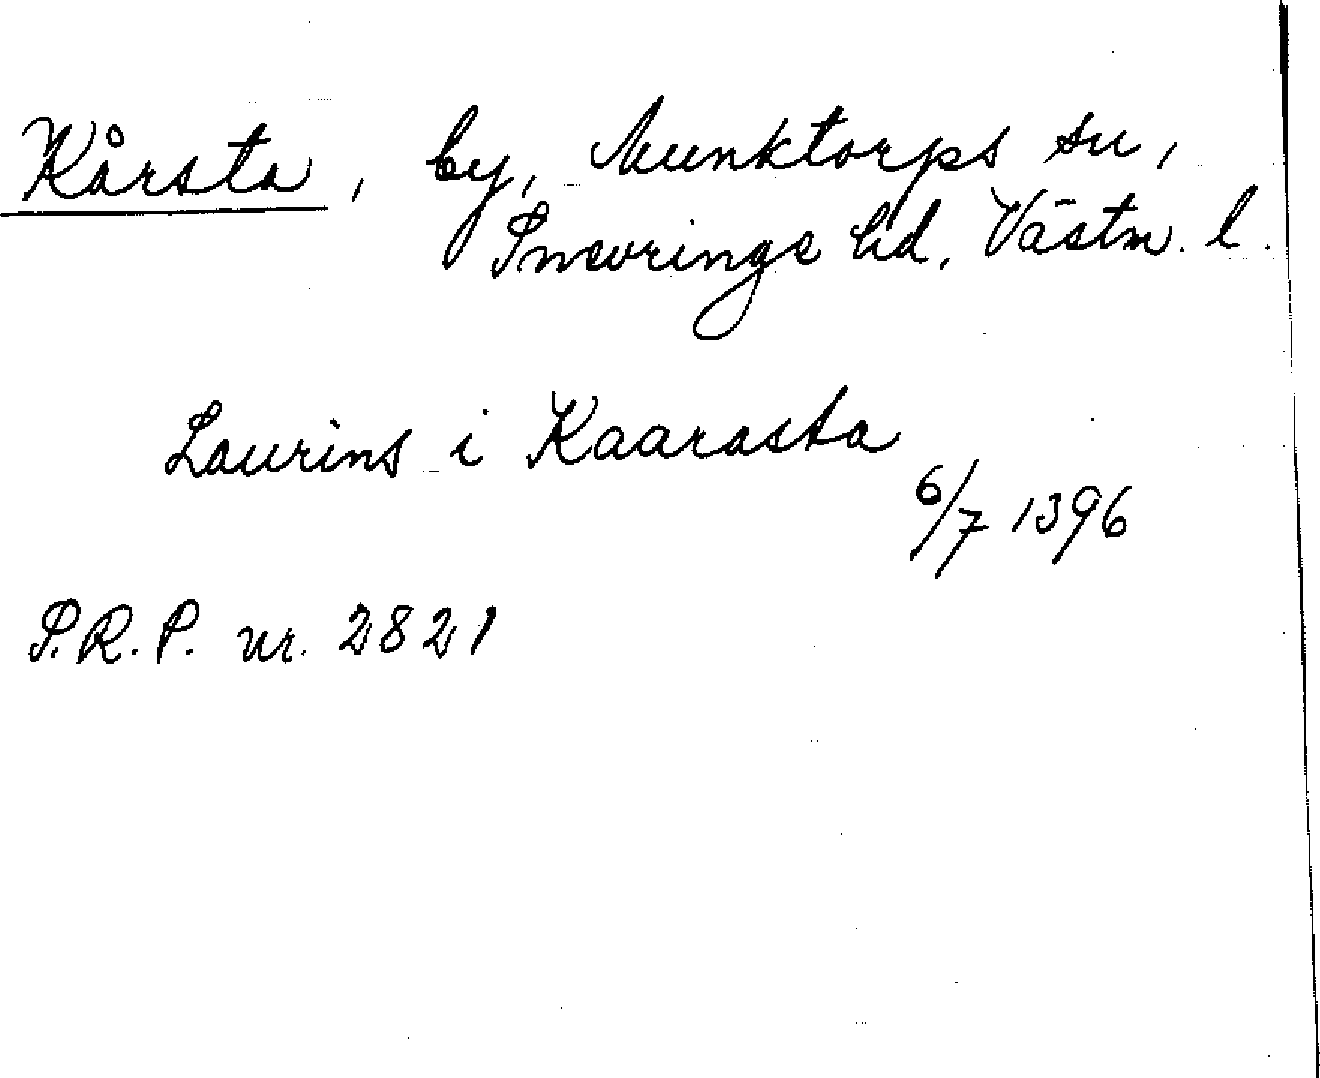 Kårsta, by, Munktorps sn,
Snevringe hd, Västm. l.
Laurins i Kaarasta
6/7 1396
S.R.P. nr. 2821